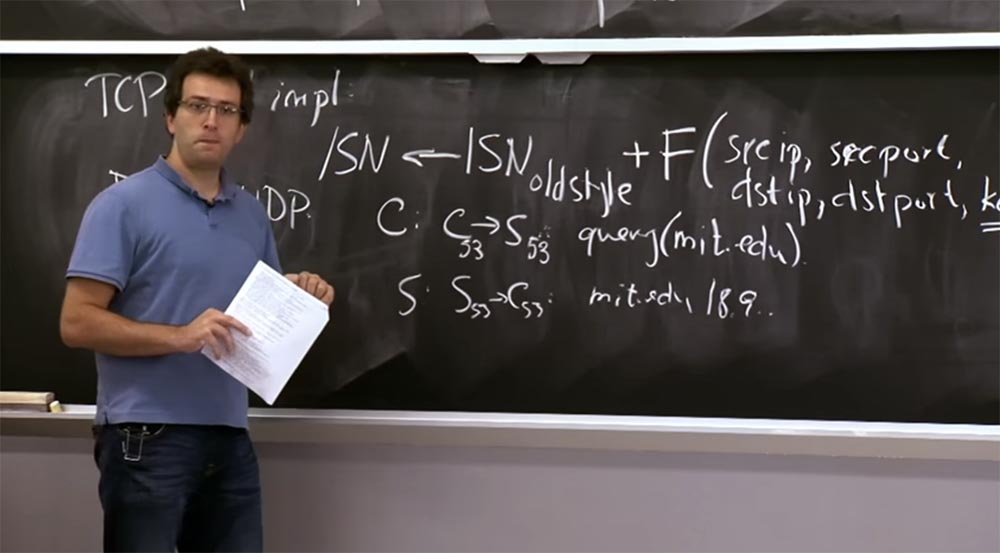 TCP impl:
ISN ← ISN oldstyle + F( srcip, srcport,
dstip, dstport,
UDP. C: C53 → S53: query(mit.edu).
S: S53 → C53: mit.edu, 18.9..